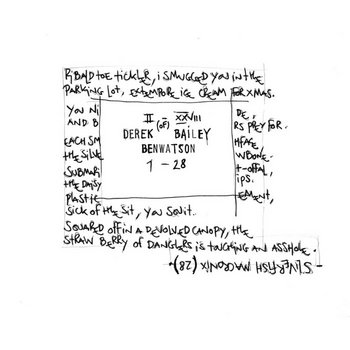 RiBALD TOE TICKLER, i SMUGGLED YOU iN THE
PARKiNG LOT, EXTEMPORE iCE CREAM FOR XMAS.
YOU Ni
AND B
EACH SM
THE SiLVE
SUBMARi
THE DAiSY
PLASTiC
II (OF) XXVIII
DEREK BAILEY
BENWATSON
1 - 28
DE,
RS PREY FOR.
HFACE,
WBONE.
T-OFFAL,
iPS.
EMENT,
SiCK OF THE SiT, YOU SQUiT.
SQUARED OFF iN A DEVOLVED CANOPY, THE
STRAW BERRY OF DANGLERS iS TUGGiNG AN ASSHOLE.
SiLVERFiSH MACRONiX (28)